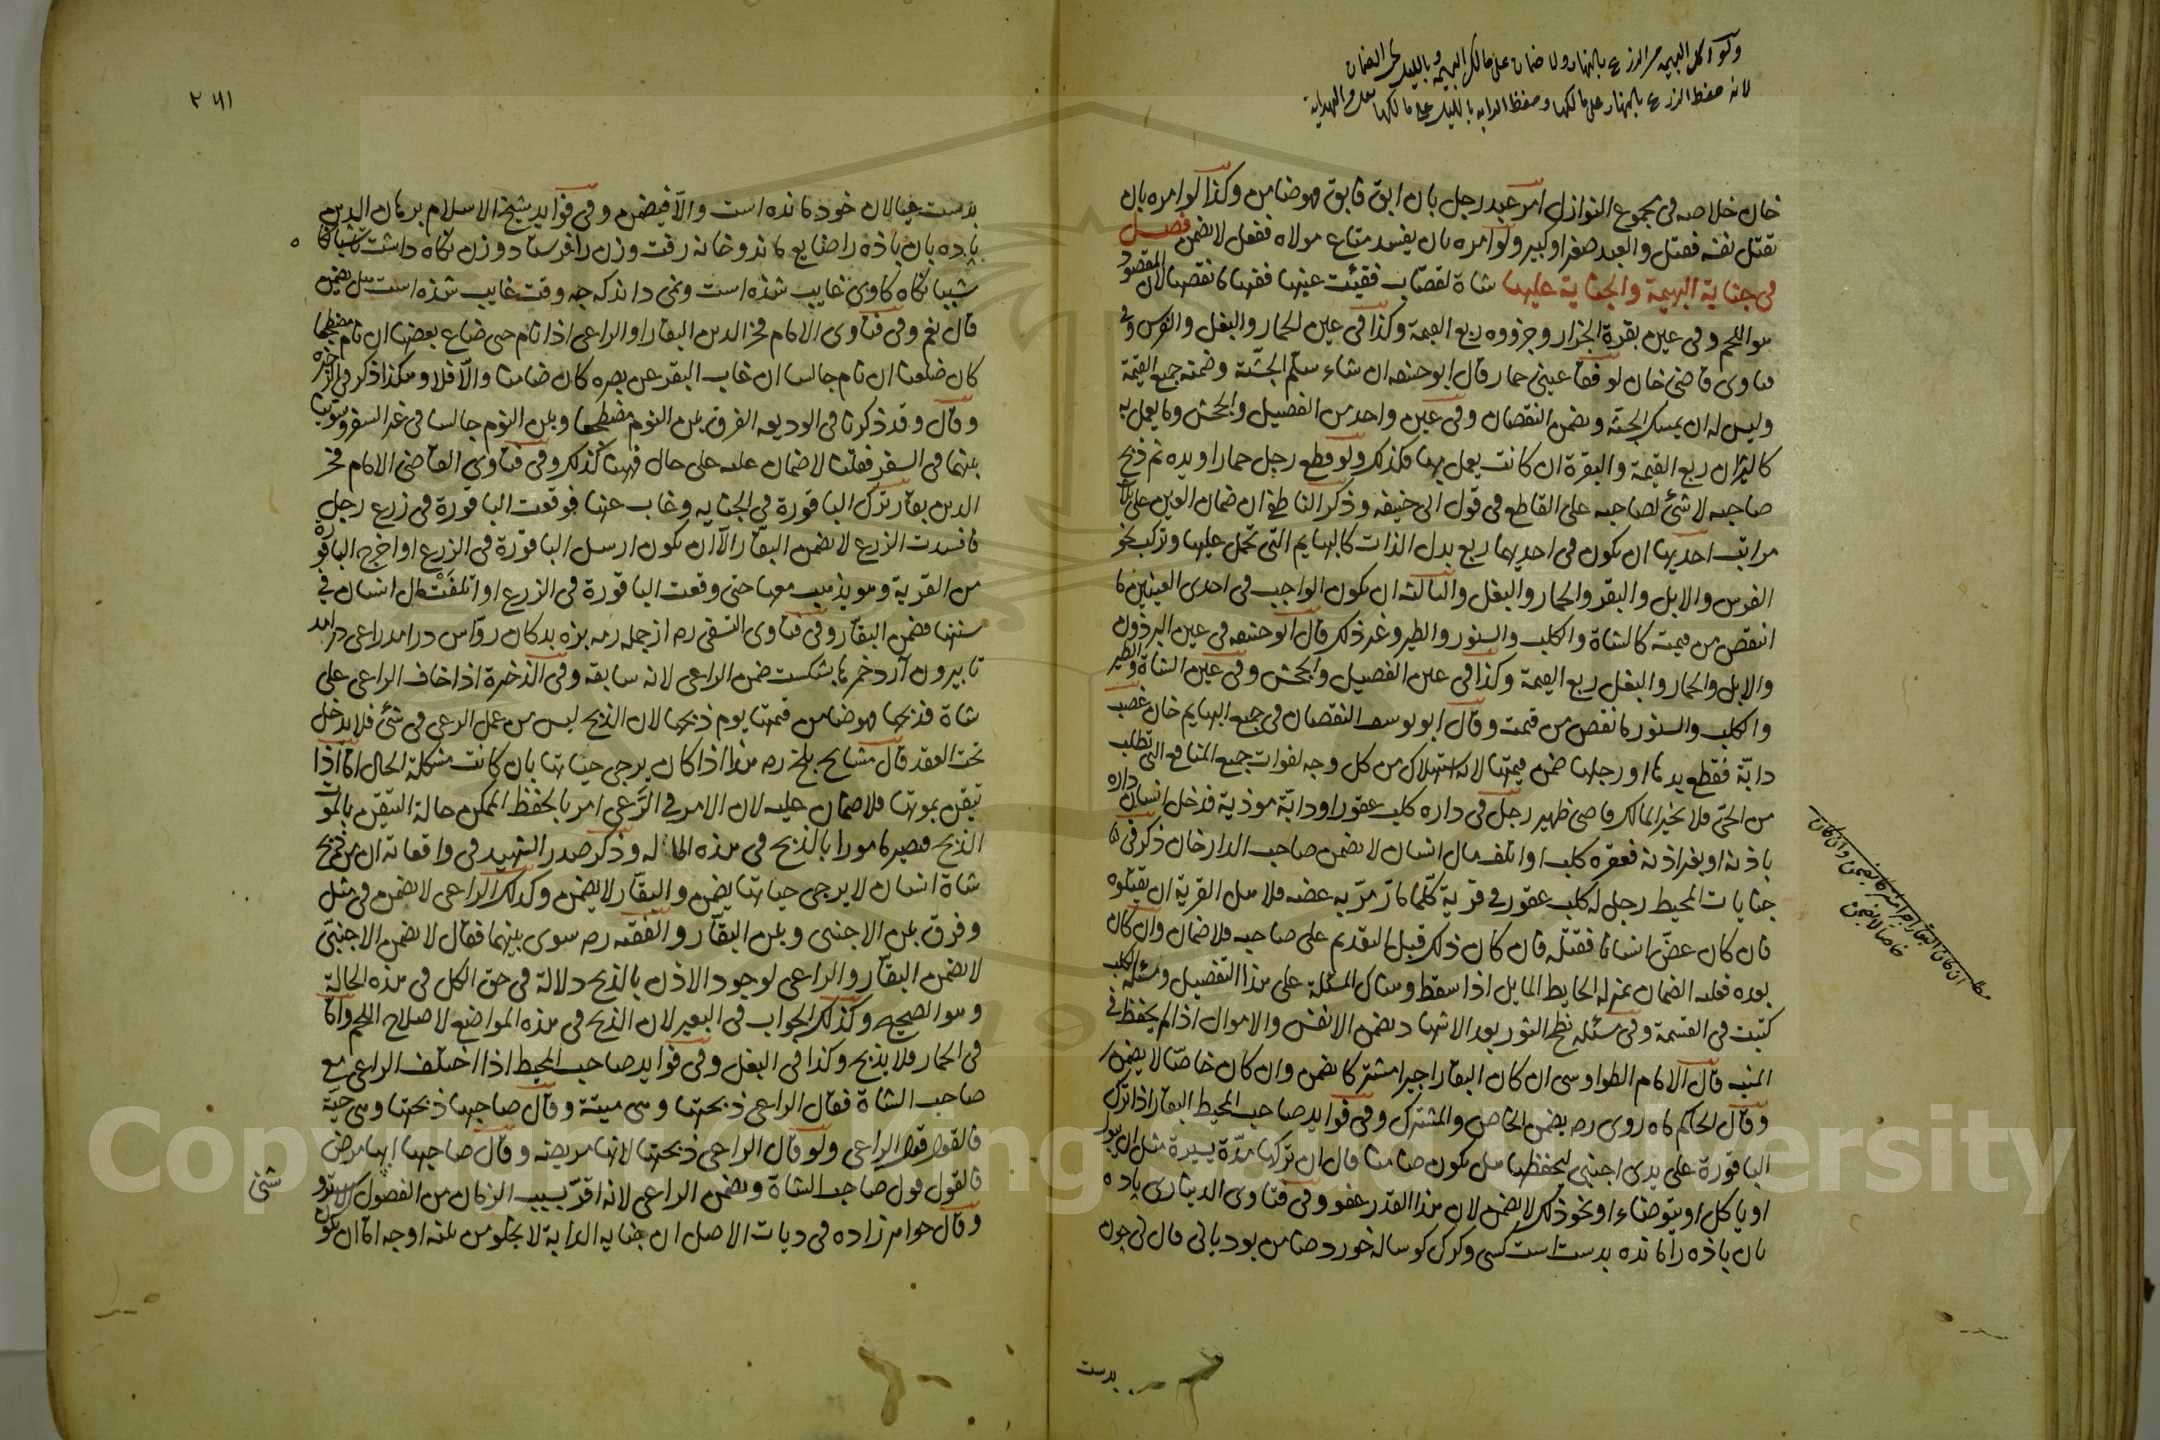 ولو اكل البهيمة الزرع بالنهار ولا ضمان على مالك البهيمة وبالليل الضمان
لانه حفظ الزرع بالنهار على مالكها وحفظ الدابة بالليل على مالكها
خان خلاصه في مجموع النوازل امر عبد رجل بان ابق فابق فهو ضامن وكذا لو امره بان
تقتل نفسه فقتل والعبد صغير او كبير ولو امره بان يفسد متاع مولاه ففعل لا يضمن فصل
في جناية البهيمة والجناية عليها شاة لقصاب فقئت عينها ففيها ما نقصها لان المقصود
هو اللحم وفي عين بقرة الجزار وجزوره ربع القيمة وكذا في عين الحمار والبغل والفرس وفي
فتاوى قاضي خان لو فقأ عيني حمار قال ابو حنيفه ان شاء سلم الجثة وضمنه جميع القيمة
وليس له ان يمسك الجثة ويضمن النقصان وفي عين واحد من الفصيل والجحش وما يعمل به
كالثيران ربع القيمة والبقرة ان كانت يعمل بها فكذلك ولو قطع رجل حمار او يده ثم ذبح
صاحبه لا شئ لصاحبه على القاطع في قول ابي حنيفه وذكر الناطفي ان ضمان العين على
مراتب احديها ان يكون في احديهما ربع بدل الذات كالبهايم التي تحمل عليها وتركب نحو
الفرس والابل والبقر والحمار والبغل والثالثه ان يكون الواجب في احدى العينين ما
انتقص من قيمته كالشاة والكلب والسنور والطير وغير ذلك قال ابو حنيفه في عين البرذون
والابل والحمار والبغل ربع القيمة وكذا في عين الفصيل والجحش وفي عين الشاة والطير
والكلب والسنور ما نقص من قيمته وقال ابو يوسف النقصان في جميع البهايم خان غصب
دابة فقطع يدها او رجلها ضمن قيمتها لانه استهلاك من كل وجه لفوات جميع المنافع التي تطلب
من الحي فلا يخير المالك قاضي ظهير رجل في داره كلب عقور او دابة موذية فدخل انسان داره
باذنه او بغير اذنه فعقره كلب او اتلف مال انسان لا يضمن صاحب الدار خان ذكر في
جنايات المحيط رجل له كلب عقور في قرية كلما مر به عضه فلاهل القرية ان يقتلوه
فان كان عض انسانا فقتله فان كان ذلك قبل التقديم على صاحبه فلا ضمان وان كان
بعده فعليه الضمان بمنزلة الحايط المايل اذا سقط وهناك المسئلة على هذا التفصيل ومسئلة الكلب
كتبت في القسمة وفي مسئلة نطح الثور بعد الاشهاد يضمن الانفس والاموال اذا لم يحفظ في
المنيه قال الامام الطواويسي ان كان البقار اجيرا مشتركا يضمن وان كان خاصا لا يضمن
وقال الحاكم ماه روى رح يضمن الخاص والمشترك وفي فوايد صاحب المحيط البقار اذا ترك
الباقورة على يدي اجنبي ليحفظها هل يكون ضامنا قال ان تركها مدة يسيرة مثل ان يبول
او ياكل او يتوضاء او نحو ذلك لا يضمن لان هذا القدر عفو وفي فتاوى الديناري ياده
بان ياده را مانده بدست است كسى وكرك كوساله خورد ضامن بود يا نى قال نى چون
بدست
ان كان البقار اجيرا مشتركا يضمن وان كان
خاصا لا يضمن
٢٧١
بدست عيالان خود مانده است والا فيضمن وفي فوايد شيخ الاسلام برهان الدين
ياده بان ياده را ضايع ماند وخانه رفت وزن را فرستاد وزن نكاه داشت تا شبانكاه
شبانكاه كاوى غايب شده است ونمى داند كه چه وقت غايب شده است هل يضمن
قال نعم وفي فتاوى الامام فخر الدين البقار او الراعي اذا نام حتى ضاع بعضها ان نام مضطجعا
كان ضامنا ان نام جالسا ان غاب البقر عن بصره كان ضامنا والا فلا وهكذا ذكر في الذخيرة
وقال وقد ذكرنا في الوديعه الفرق بين النوم مضطجعا وبين النوم جالسا في غير السفر وسوينا
بينهما في السفر فقلنا لا ضمان عليه على حال فههنا كذلك وفي فتاوى القاضي الامام فخر
الدين بقار ترك الباقورة في الجبانه وغاب عنها فوقعت الباقورة في زرع رجل
فافسدت الزرع لا يضمن البقار الا ان يكون ارسل الباقورة في الزرع او اخرج الباقورة
من القرية وهو يذهب معها حتى وقعت الباقورة في الزرع او اتلفت مال انسان في
سننها فضمن البقار وفي فتاوى النسفي رح از جمله رمه بزه بدكان رواس در امد راعى درامد
تا بيرون آرد خمرها بشكست ضمن الراعي لانه سايقه وفي الذخيرة اذا خاف الراعي على
شاة فذبحها فهو ضامن قيمتها يوم ذبحها لان الذبح ليس من عمل الرعي في شئ فلا يدخل
تحت العقد قال مشايخ بلخ رح هذا اذا كان يرجى حياتها بان كانت مشكلة الحال اما اذا
تيقن بموتها فلا ضمان عليه لان الامر في الرعي امر بالحفظ الممكن حالة التيقن بالموت
الذبح فيصير مامورا بالذبح في هذه الحاله وذكر صدر الشهيد في واقعاته ان من ذبح
شاة انسان لا يرجى حياتها يضمن والبقار لا يضمن وكذلك الراعي لا يضمن في مثل
وفرق بين الاجنبي وبين البقار والفقيه رح سوى بينهما فقال لا يضمن الاجنبي
لا يضمن البقار والراعي لوجود الاذن بالذبح دلالة في حق الكل في هذه الحالة
وهو الصحيح وكذلك الجواب في البعير لان الذبح في هذه المواضع لاصلاح اللحم واما
في الحمار فلا يذبح وكذا في البغل وفي فوايد صاحب المحيط اذا اختلف الراعي مع
صاحب الشاة فقال الراعي ذبحتها وهي ميتة وقال صاحبها ذبحتها وهي حية
فالقول قول الراعي ولو قال الراعي ذبحتها لانها مريضه وقال صاحبها ما بها مرض
فالقول قول صاحب الشاة ويضمن الراعي لانه اقر بسبب الضمان من الفصول
وقال خواهر زاده في ديات الاصل ان جنايه الدابة لا يخلو من ثلثة اوجه اما ان يكون
شتى
Copyright © King Saud University